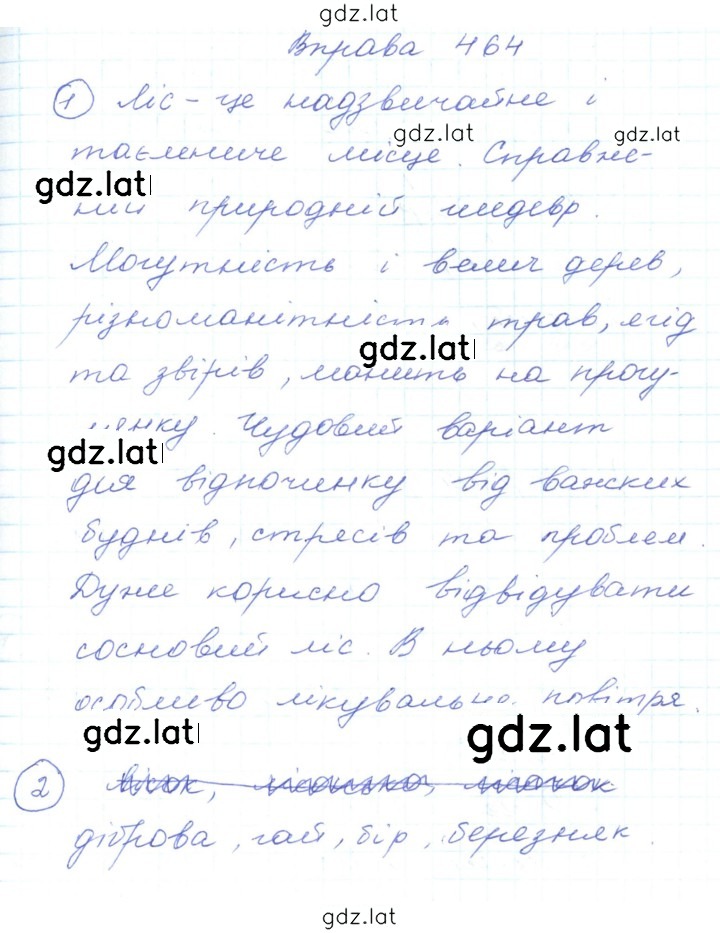 gdz.lat
Вправа 464
1 Ліс - це надзвичайне і
gdz.lat gdz.lat
таємниче місце. Справж-
gdz.lat
ній природній шедевр.
Могутність і велич дерев,
різноманітність трав, ягід
gdz.lat
та звірів, манить на прогу-
лянку. Чудовий варіант
gdz.lat
для відпочинку від важких
буднів, стресів та проблем.
Дуже корисно відвідувати
сосновий ліс. В ньому
особливо лікувальне повітря.
gdz.lat gdz.lat
2
діброва, гай, бір, березняк.
gdz.lat